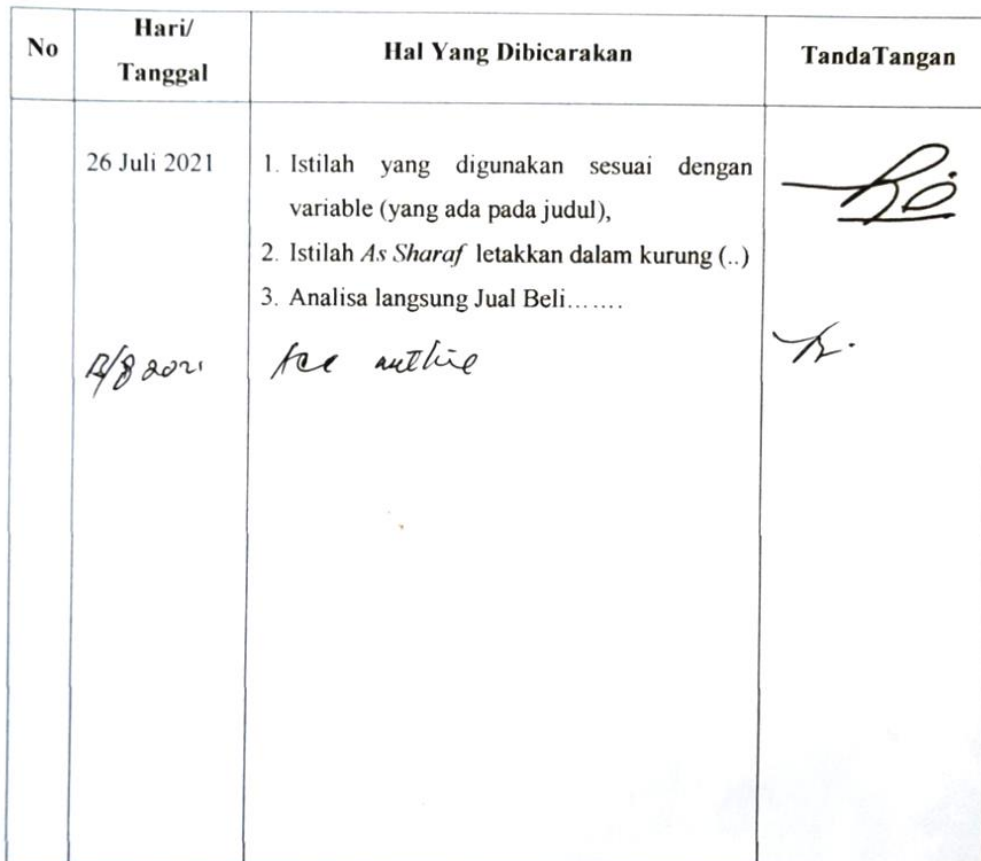 No
Hari/
Tanggal
Hal Yang Dibicarakan
TandaTangan
26 Juli 2021
1. Istilah yang digunakan sesuai dengan
variable (yang ada pada judul),
2. Istilah As Sharaf letakkan dalam kurung (..)
3. Analisa langsung Jual Beli.......
/8 2021
Acc outline